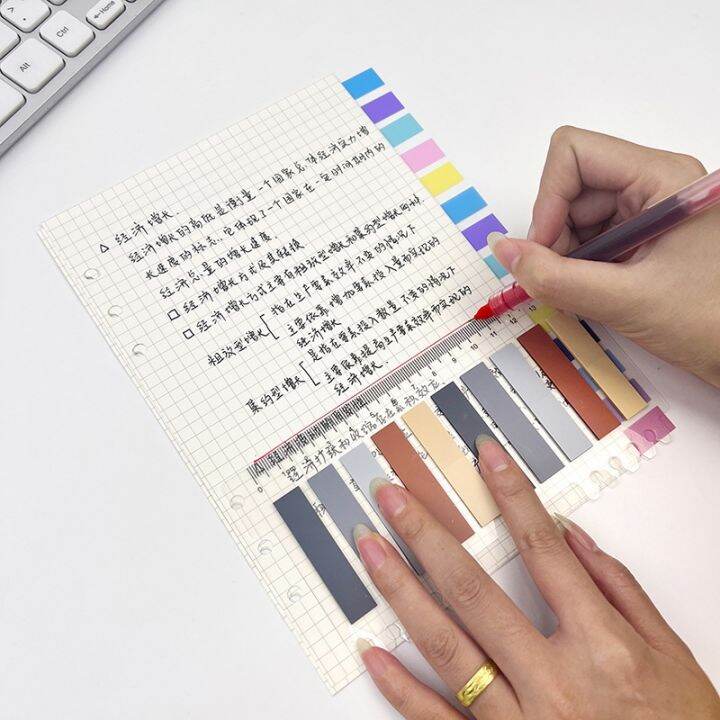 Home
Ctrl
Alt
△ 经济增长.
经济增长的高低是衡量一个国家总体经济实力增
长速度的标志,它体现了一个国家在一定时间期内的
经济总量的增长速度.
□ 经济增长方式及其转换
□ 经济增长方式主要有粗放型增长和集约型增长两种.
粗放型增长[指在生产要素效率不变的情况下
主要依靠增加要素投入量而实现的
经济增长
集约型增长[是指在要素投入数量不变的情况下
主要依靠提高生产要素效率而实现的
经济增长.
0 7 8 9 10 11 12 13